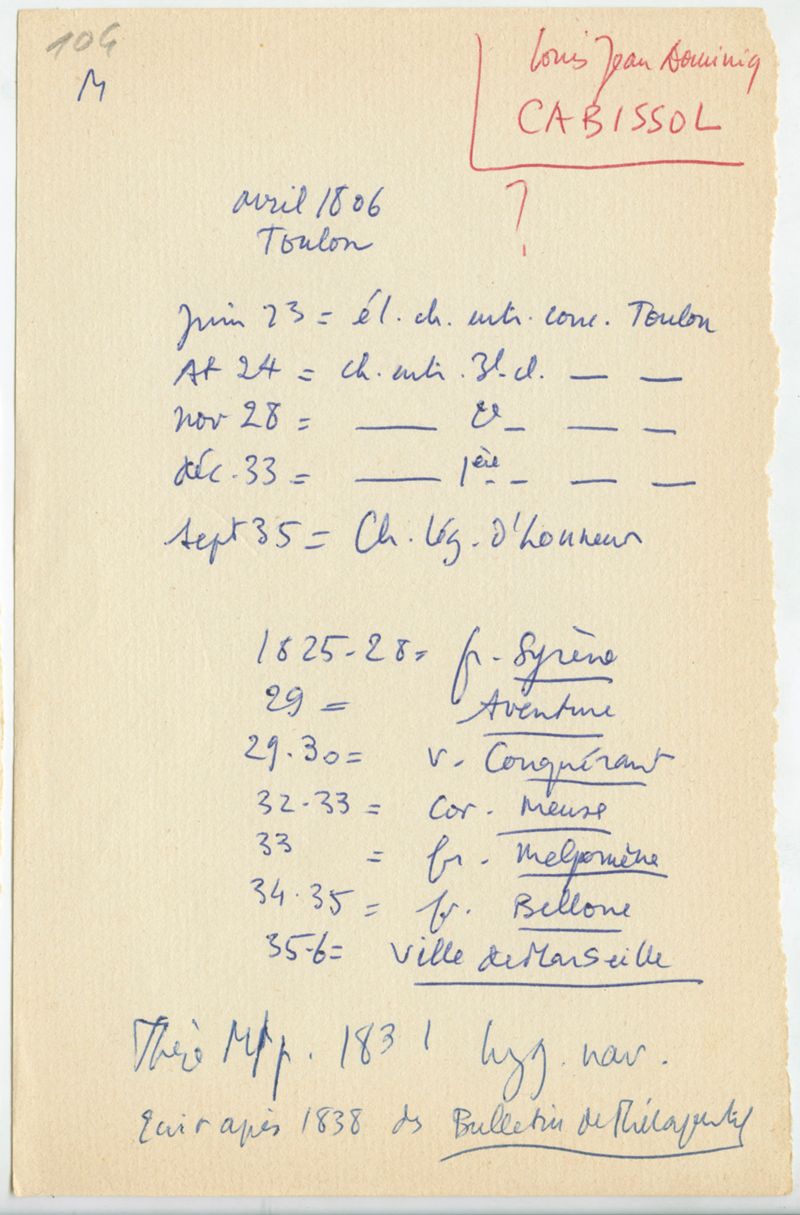 104
M
Louis Jean Dominiq
CABISSOL
?
avril 1806
Toulon
Juin 23 = él. ch. entr. conc. Toulon
At 24 = ch. entr. 3e cl. — —
nov 28 = — 2e — — —
déc. 33 = — 1ère - - — —
Sept 35 = Ch. Lég. d'honneur
1825-28 = fr. Syrène
29 = Aventure
29.30 = v. Conquérant
32-33 = cor. Meuse
33 = fr. Melpomène
34.35 = fr. Bellone
35-6 = Ville de Marseille
Thèse Mtp. 1831 hyg. nav.
Ecrit après 1838 ds Bulletin de Thérapeutiq